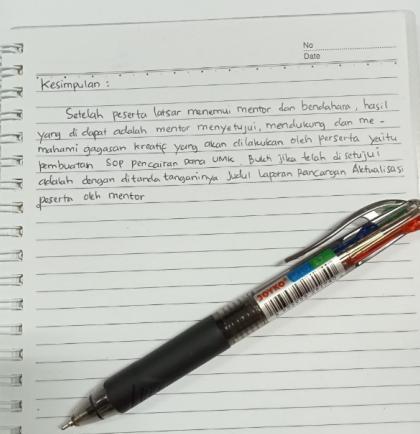 No
Date
Kesimpulan :
Setelah peserta latsar menemui mentor dan bendahara, hasil
yang di dapat adalah mentor menyetujui, mendukung dan me-
mahami gagasan kreatif yang akan dilakukan oleh perserta yaitu
pembuatan SOP pencairan dana UMK. Bukti jika telah disetujui
adalah dengan ditanda tanganinya Judul Laporan Rancangan Aktualisasi
peserta oleh mentor
JOYKO